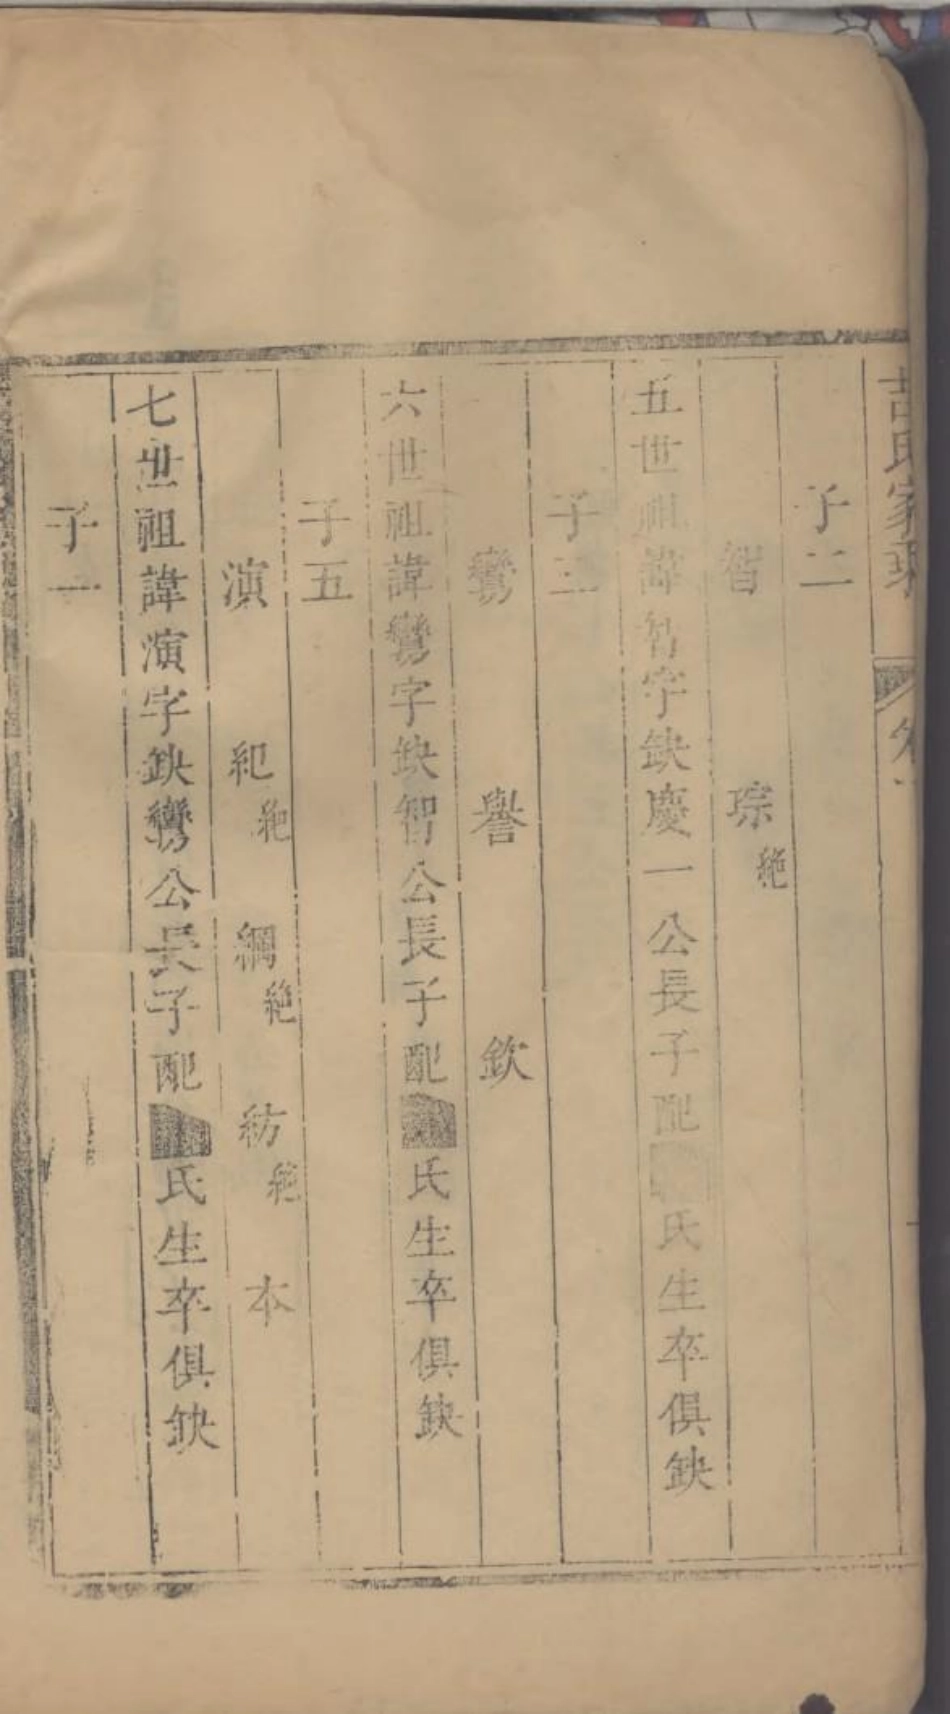 氏家 卷一
子二
智 琮絶
五世祖諱智字缺慶一公長子配 氏生卒俱缺
子三
譽 欽
六世祖諱 字缺智公長子配 氏生卒俱缺
子五
演 紀絶 綱絶 紡絶 本
七世祖諱演字缺 公長子配 氏生卒俱缺
子一